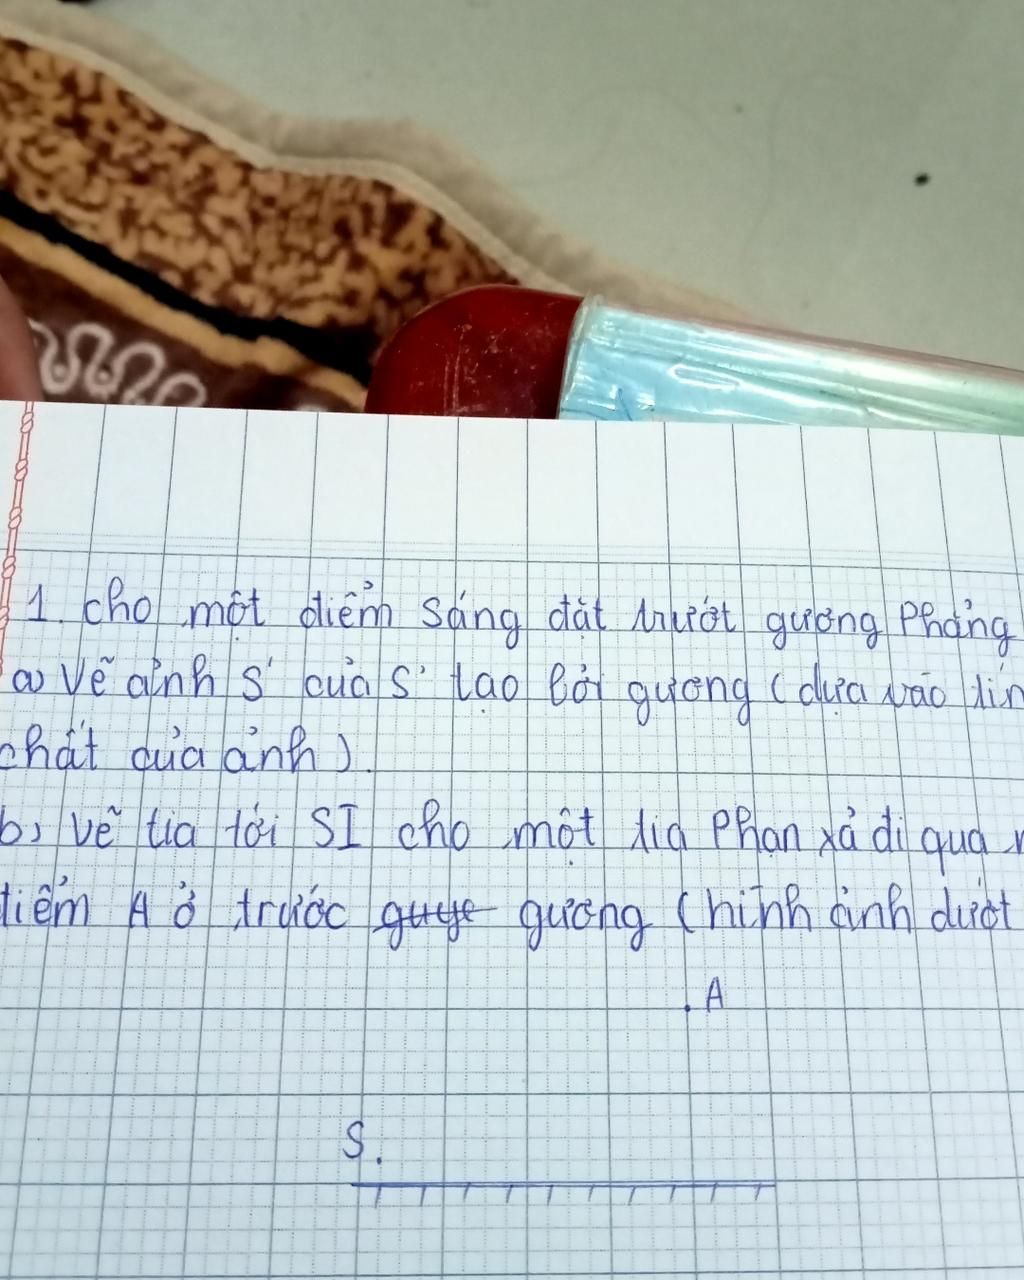 1. cho một điểm sáng đặt trướt gương Phẳng
a) Vẽ ảnh S' của S' tạo bởi gương (dựa vào tín
chất của ảnh).
b) Vẽ tia tới SI cho một tia Phản xạ đi qua
điểm A ở trước gương (hình ảnh dướt
. A
S .